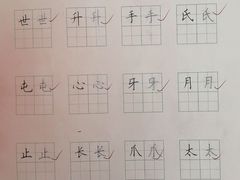 世世 升升 手手 氏氏
屯屯 心心 牙牙 月月
止止 长长 爪爪 太太